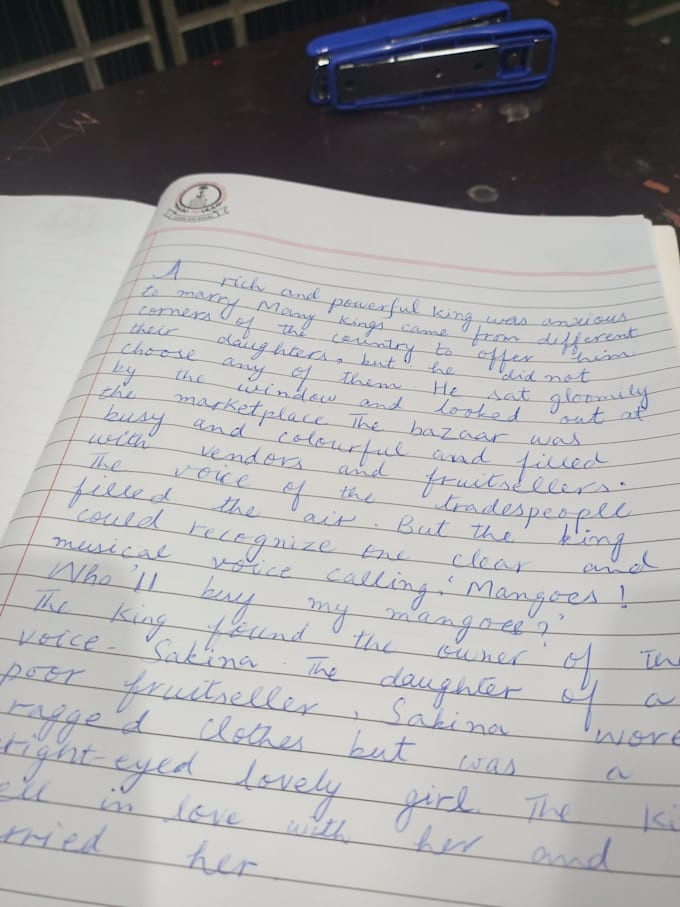 A rich and powerful king was anxious
to marry Many kings came from different
corners of the country to offer him
their daughters, but he did not
choose any of them. He sat gloomily
by the window and looked out at
the marketplace The bazaar was
busy and colourful and filled
with vendors and fruitsellers.
The voice of the tradespeople
filled the air. But the king
could recognize one clear and
musical voice calling, 'Mangoes!
Who'll buy my mangoes?'
The king found the owner of the
voice - Sakina. The daughter of a
poor fruitseller, Sakina wore
ragged clothes but was a
right-eyed lovely girl. The ki
ell in love with her and
rried her